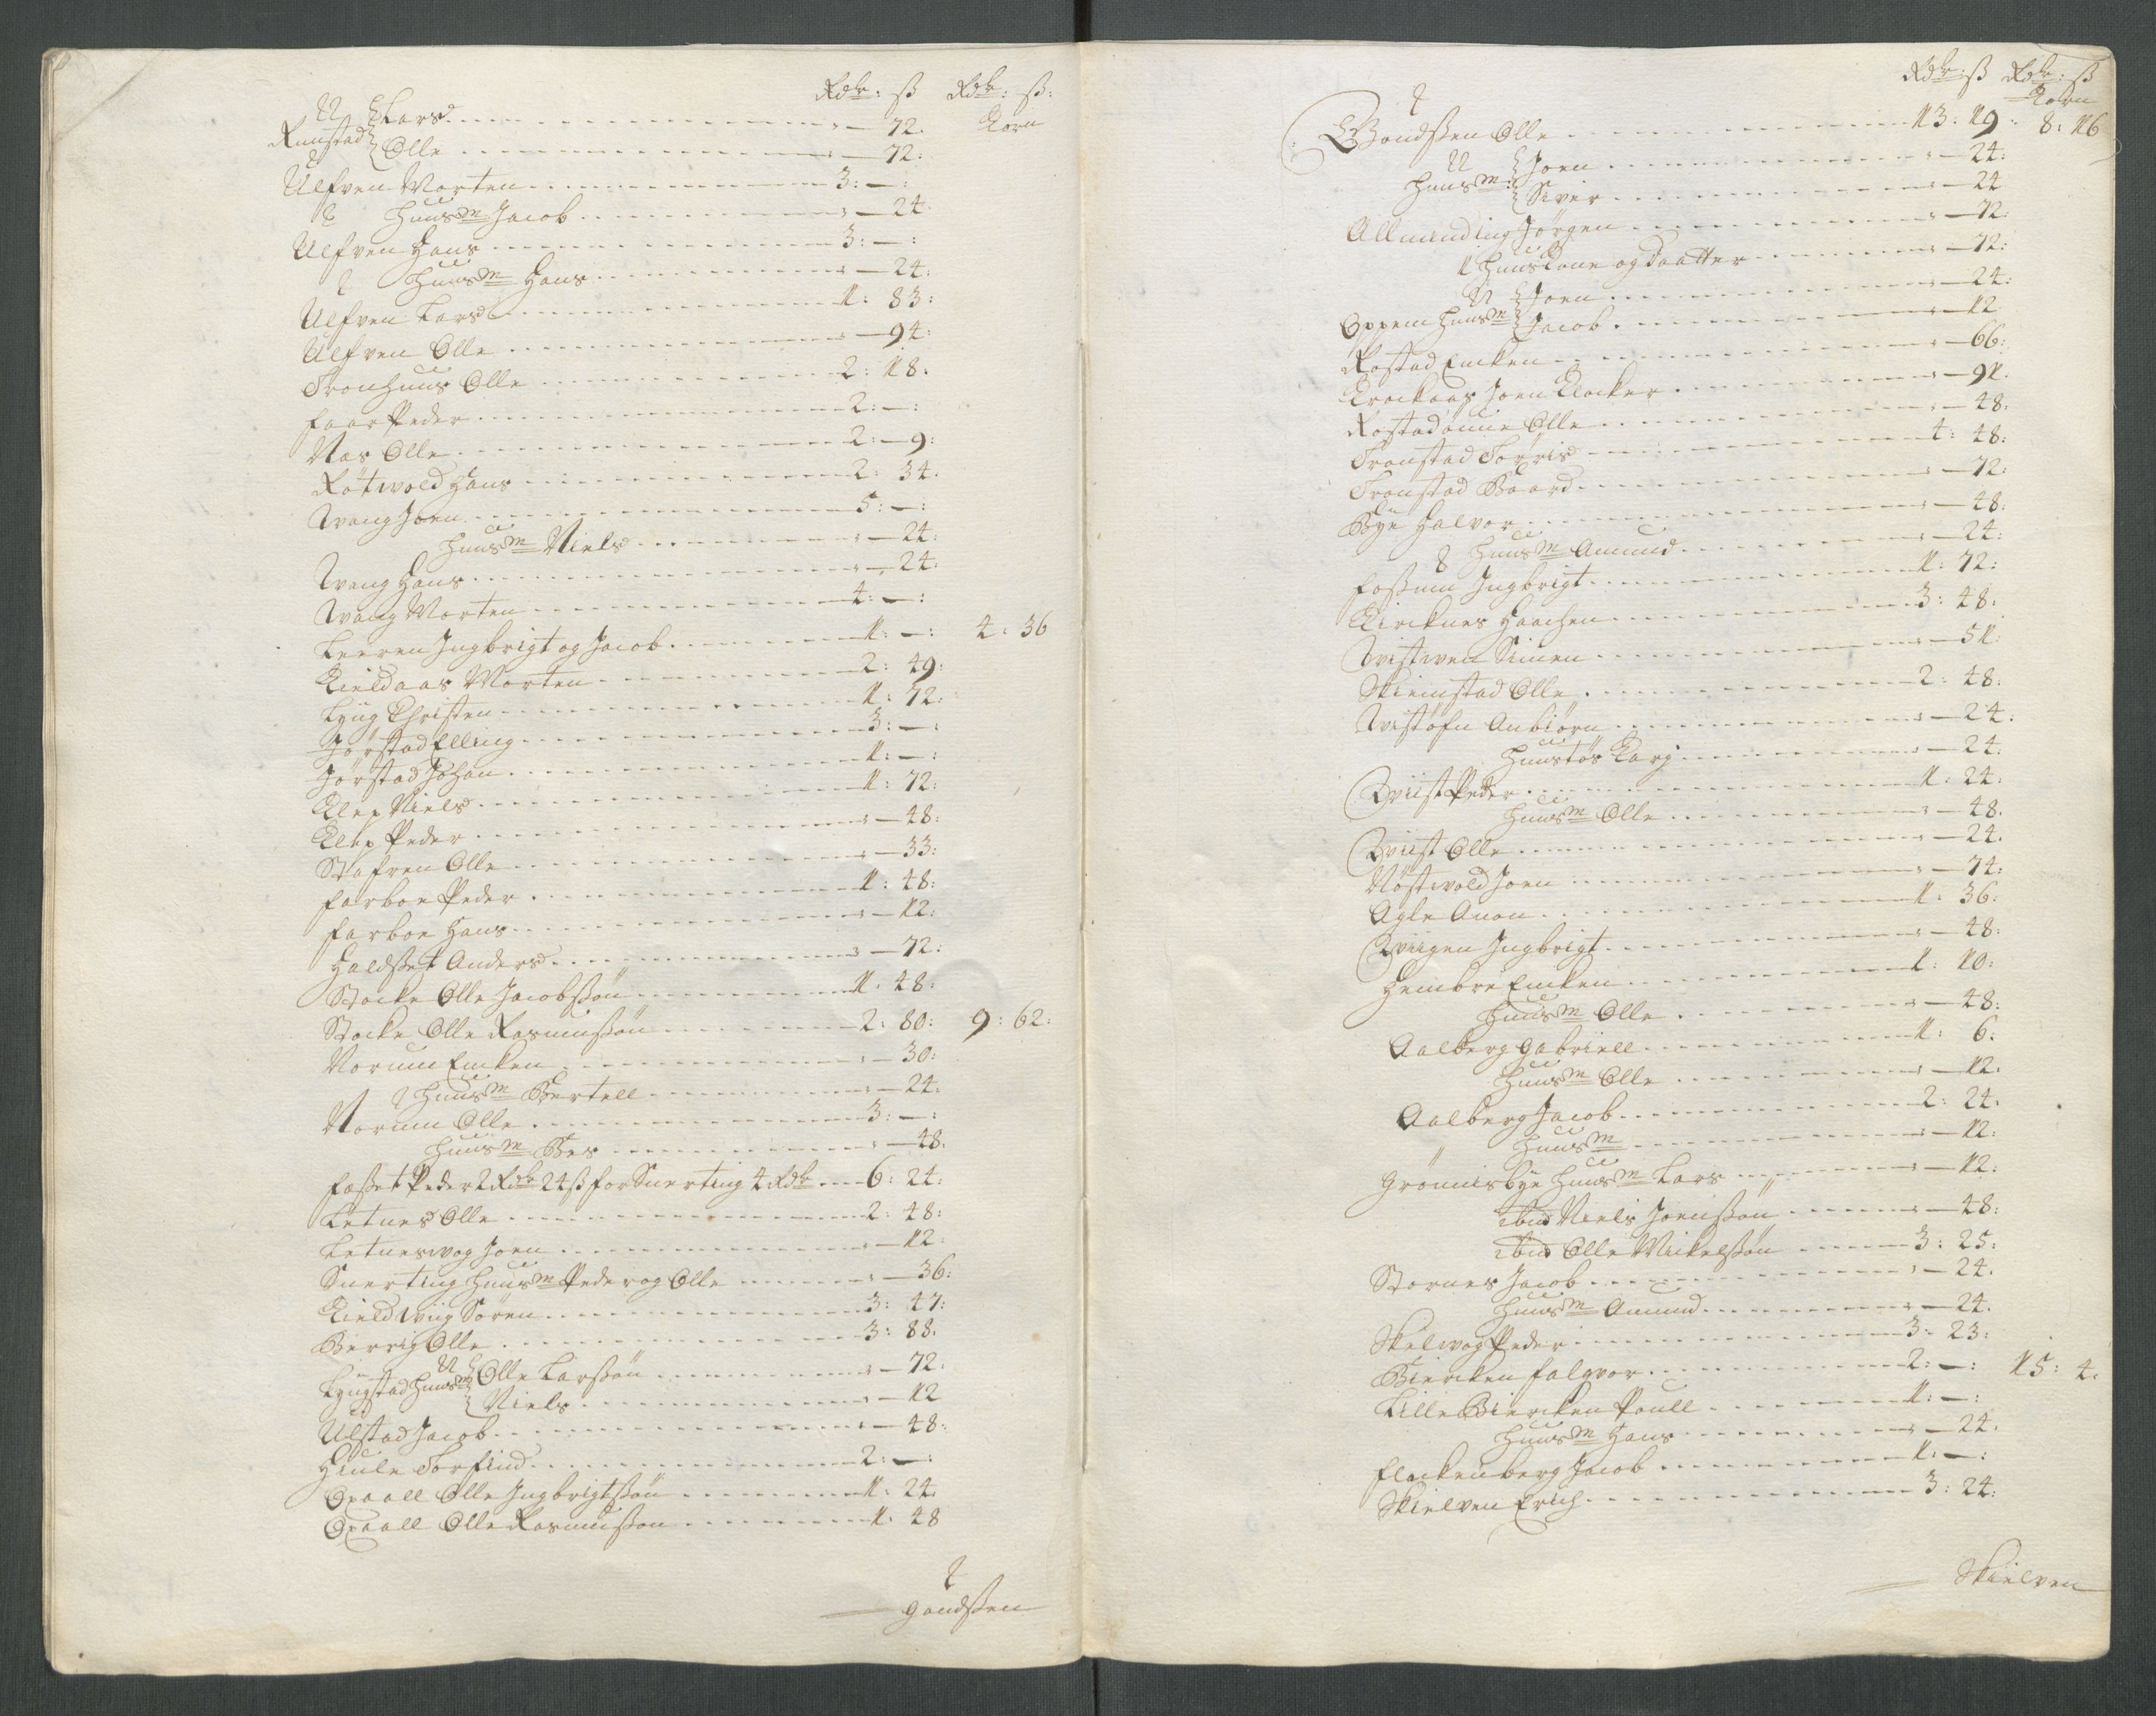 Rdr: ß Rdr: ß:
Korn
Lars - 72.
Runstad
Olle - 72:
Ulfven Morten 3: - :
Huusm Jacob - 24.
Ulfven Hans 3: - :
Huusm Hans - 24:
Ulfven Lars 1: 83:
Ulfven Olle - 94:
Tronhuus Olle 2: 18.
Faar Peder 2: - :
Nas Olle 2: - 9:
Røtwold Hans 2: 34.
Wang Joen 5: - :
Huusm Niels - 24:
Wang Hans - 24:
Wang Morten 4: - :
Leeren Ingbrigt og Jacob 1: - : 4: 36
Kieldaas Morten 2: 49:
Lÿng Christen 1: 72:
Jørstad Elling 3: - :
Jørstad Johan 1: - :
Klep Niels 1: 72:
Klep Peder - 48:
Stafren Olle - 33:
Farboe Peder 1: 48:
Farboe Hans - 12:
Haldset Anders - 72:
Stocke Olle Jacobssøn 1. 48:
Stocke Olle Rasmussøn 2: 80: 9: 62:
Norum Encken - 30:
Huusm Bertell - 24:
Norum Olle 3: - :
Huusm Bes - 48.
Fosset Peder 2 Rdr 24 ß for Snerting 4 Rdr 6: 24:
Letnes Olle 2: 48:
Letneswog Joen - 12:
Snerting Huusm Peder og Olle - 36:
Kieldwiig Søren 3: 47:
Berrig Olle 3: 88.
Olle Larssøn - 72.
Lÿngstad Huusm
Niels - 12
Ulstad Jacob - 48:
Hiule Torfind 2: - :
Opaall Olle Ingbrigtssøn 1: 24.
Opaall Olle Rasmussøn 1: 48
Gondssen
Rdr: ß Rdr: ß
Korn
Gondssen Olle 13: 19: 8: 16
Joen - 24:
Huusm:
Siver - 24
Allmending Jørgen - 72:
1 Huuskone og Daatter - 72:
Joen - 24:
Oppem Huusm
Jacob - 12
Rostad Encken - 66:
Krockaas Joen Klocker - 91.
Rostadønne Olle - 48.
Tronstad Torris 4: 48:
Tronstad Baard - 72:
Bÿe Halvor - 48:
Huusm Amund - 24:
Fossum Ingbrigt 1: 72:
Kircknes Haachen 3: 48:
Wistwen Simen - 51:
Skiemstad Olle 2: 48:
Wistøfn Anbiørn - 24:
Huustøs Karj - 24:
Qviist Peder 1. 24:
Huusm Olle - 48.
Qviist Olle - 24.
Nøstwold Joen - 74:
Agle Anon 1. 36.
Qviigen Ingbrigt - 48:
Hembre Encken 1: 10:
Huusm Olle - 48:
Aalberg Gabriell 1: 6:
Huusm Olle - 12.
Aalberg Jacob 2: 24.
" Huusm - 12:
Grønnisbÿe Huusm Lars - 12:
ibid Niels Joenssøn - 48:
ibid Olle Mickelssøn 3: 25:
Stornes Jacob - 24.
Huusm Amund - 24.
Skelwog Peder 3: 23:
Biercken Falqvor 2: - : 15: 4.
Lille Biercken Poull 1: - :
Huusm Hans - 24.
Flackenberg Jacob 1: - :
Skielven Erich 3: 24:
Skielven